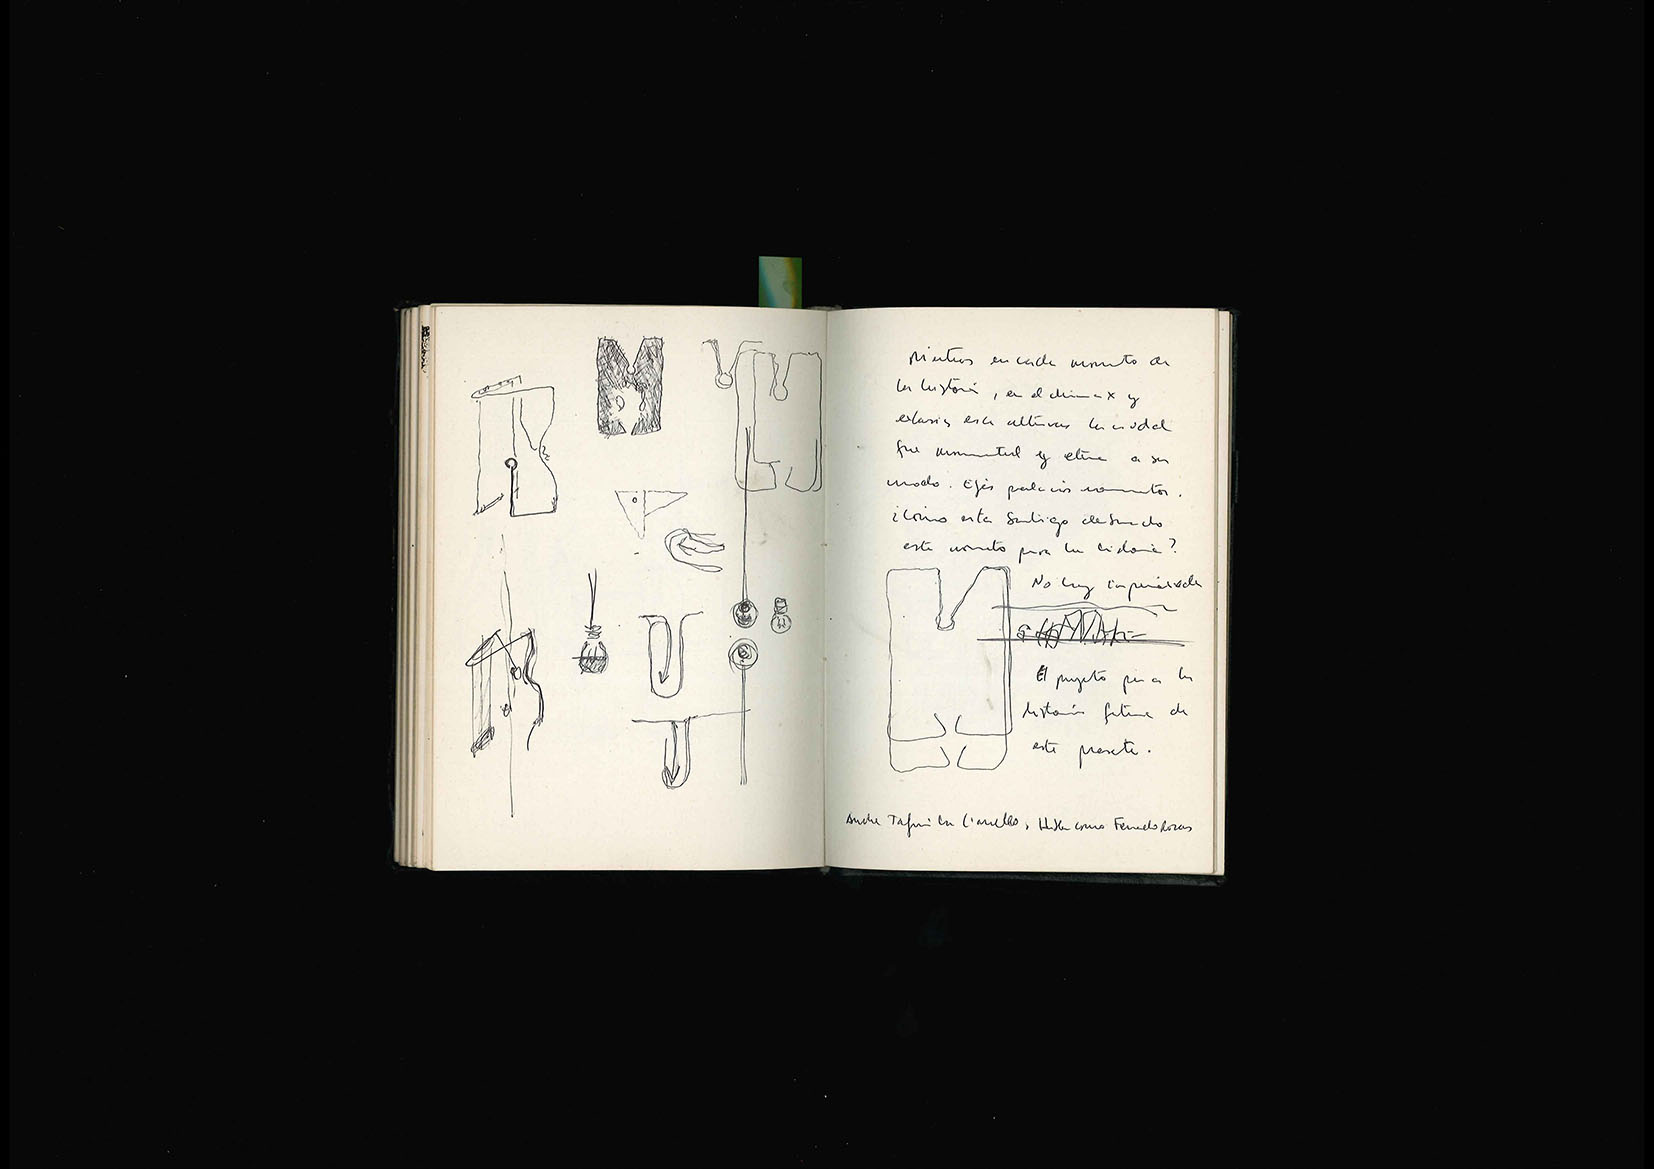 Mientras en cada momento de
la historia, en el climax y
extasis esa alturas la ciudad
fue monumental y eterna a su
modo. Ejes palacios monumentos.
¿Cómo esta Santiago
este momento para la historia?
No hay
El proyecto para la
historia futura de
este presente.
Anoche Tafuri en Canelo, Habla como Fernando Rosas